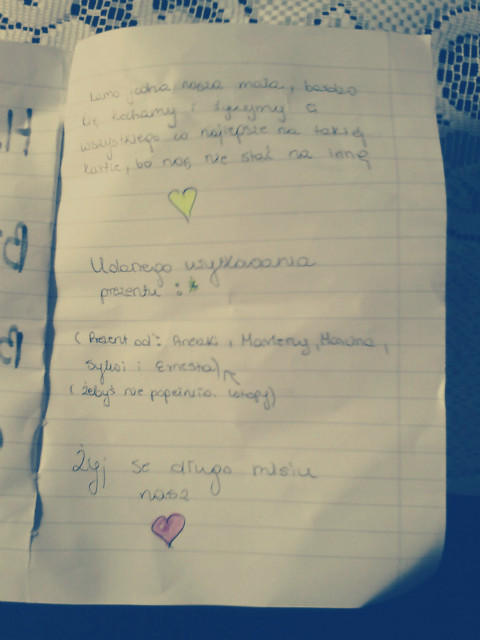 jedna nasza mała, bardzo
Cię kochamy i życzymy Ci
wszystkiego co najlepsze na takiej
kartce, bo nas nie stać na inną
Udanego użytkowania
prezentu :*
(Prezent od: Anetki, Marleny, Marcina,
Sylwi i Ernesta)
(żebyś nie popełniła wtopy)
Żyj se długo misiu
nasz